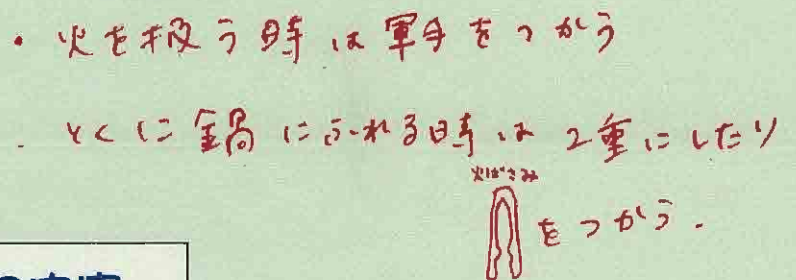 ・火を扱う時は軍手をつかう
・とくに鍋にふれる時は2重にしたり
火ばさみ
をつかう.